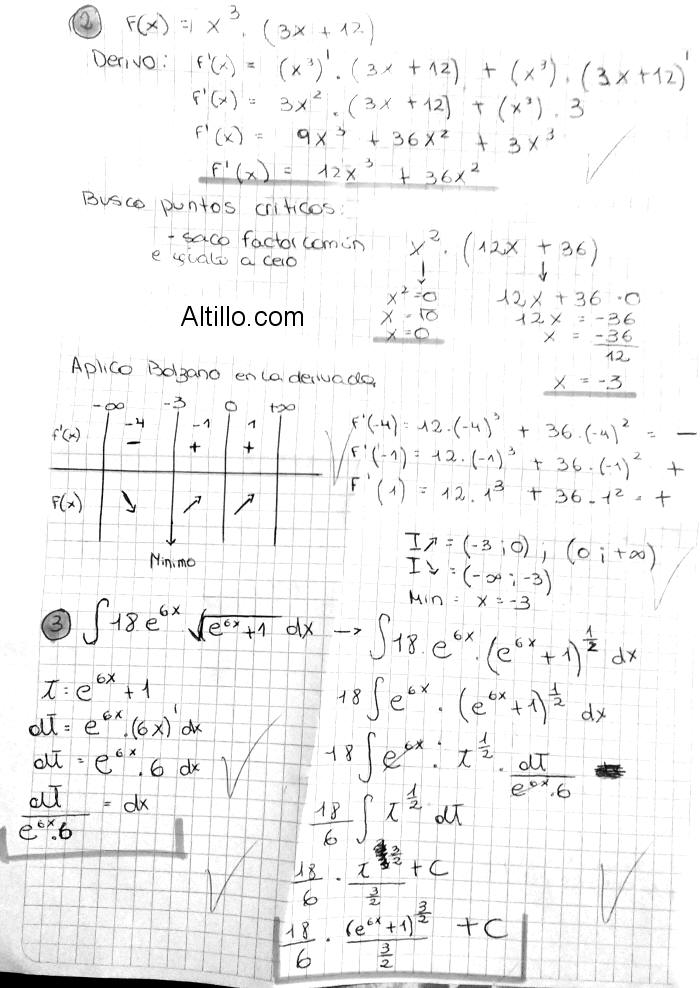 ② F(x) = x³ · (3x + 12)
Derivo: F'(x) = (x³)' · (3x + 12) + (x³) · (3x + 12)'
F'(x) = 3x² · (3x + 12) + (x³) · 3
F'(x) = 9x³ + 36x² + 3x³
F'(x) = 12x³ + 36x²
Busco puntos críticos:
- saco factor común
e igualo a cero
x² · (12x + 36)
↓ ↓
x² = 0
x = √0
x = 0
12x + 36 = 0
12x = -36
x = -36/12
x = -3
Altillo.com
Aplico Bolzano en la derivada
-∞ -3 0 +∞
f'(x) -4 -1 1
- + +
F(x) ↘ ↗ ↗
Mínimo
F'(-4) = 12·(-4)³ + 36·(-4)² = -
F'(-1) = 12·(-1)³ + 36·(-1)² +
F'(1) = 12·1³ + 36·1² = +
I↗ = (-3; 0) ; (0; +∞)
I↘ = (-∞; -3)
Min = x = -3
③ ∫18 e^6x √(e^6x + 1) dx → ∫18 · e^6x · (e^6x + 1)^1/2 dx
t = e^6x + 1
dt = e^6x · (6x)' dx
dt = e^6x · 6 dx
dt/(e^6x · 6) = dx
18 ∫e^6x · (e^6x + 1)^1/2 dx
18 ∫e^6x · t^1/2 · dt/(e^6x · 6)
18/6 ∫t^1/2 dt
18/6 · t^3/2/(3/2) + C
18/6 · (e^6x + 1)^3/2/(3/2) + C